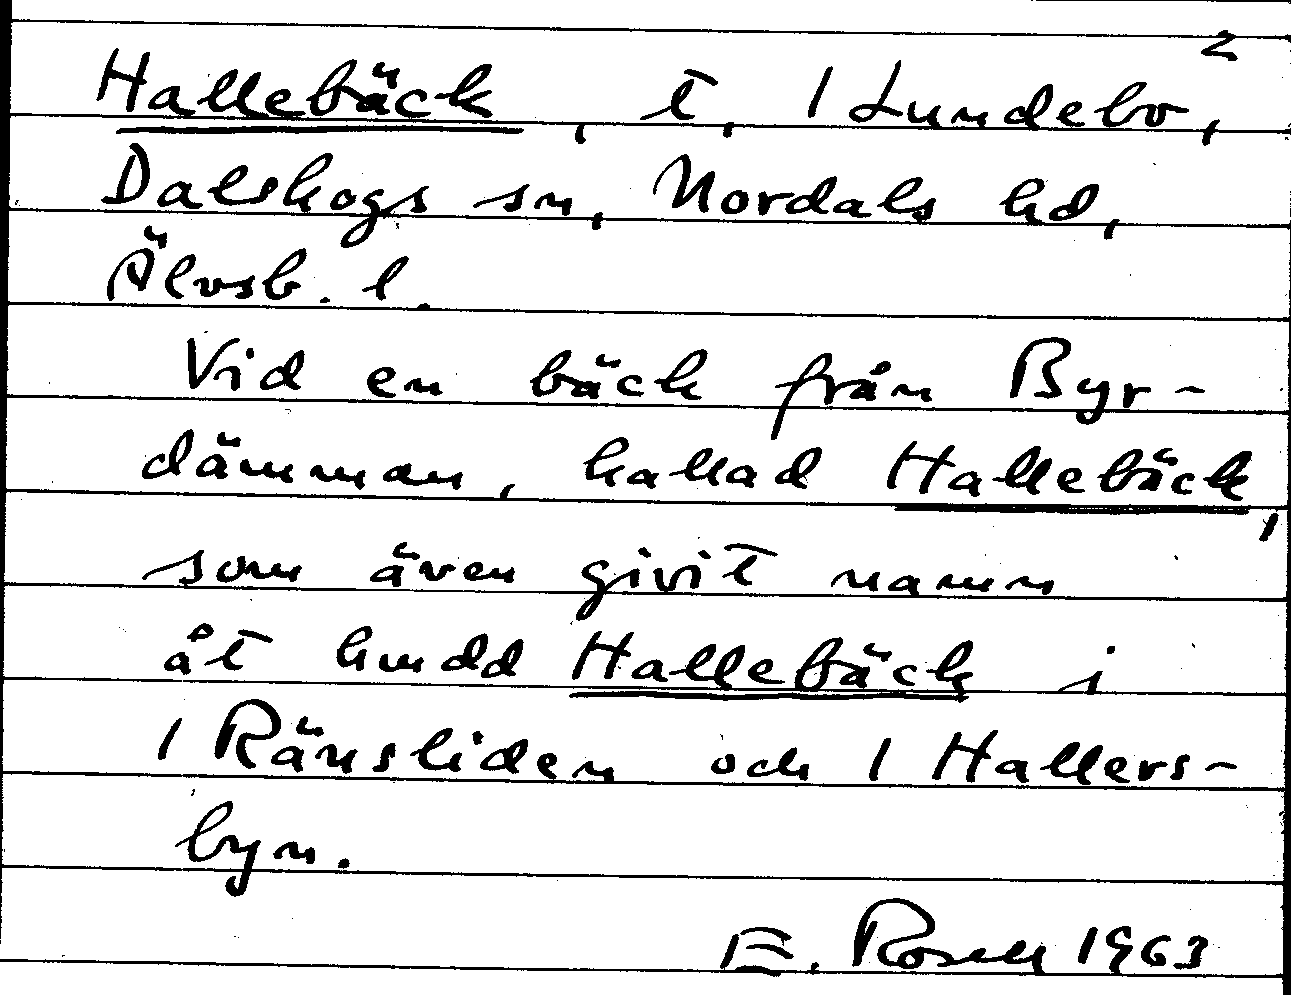 2
Hallebäck, t, 1 Lundebo,
Dalskogs sn, Nordals hd,
Älvsb. l.
Vid en bäck från Byr-
dämman, kallad Hallebäck,
som även givit namn
åt hmdd Hallebäck i
1 Ränsliden och 1 Hallers-
byn.
E. Rosell 1963